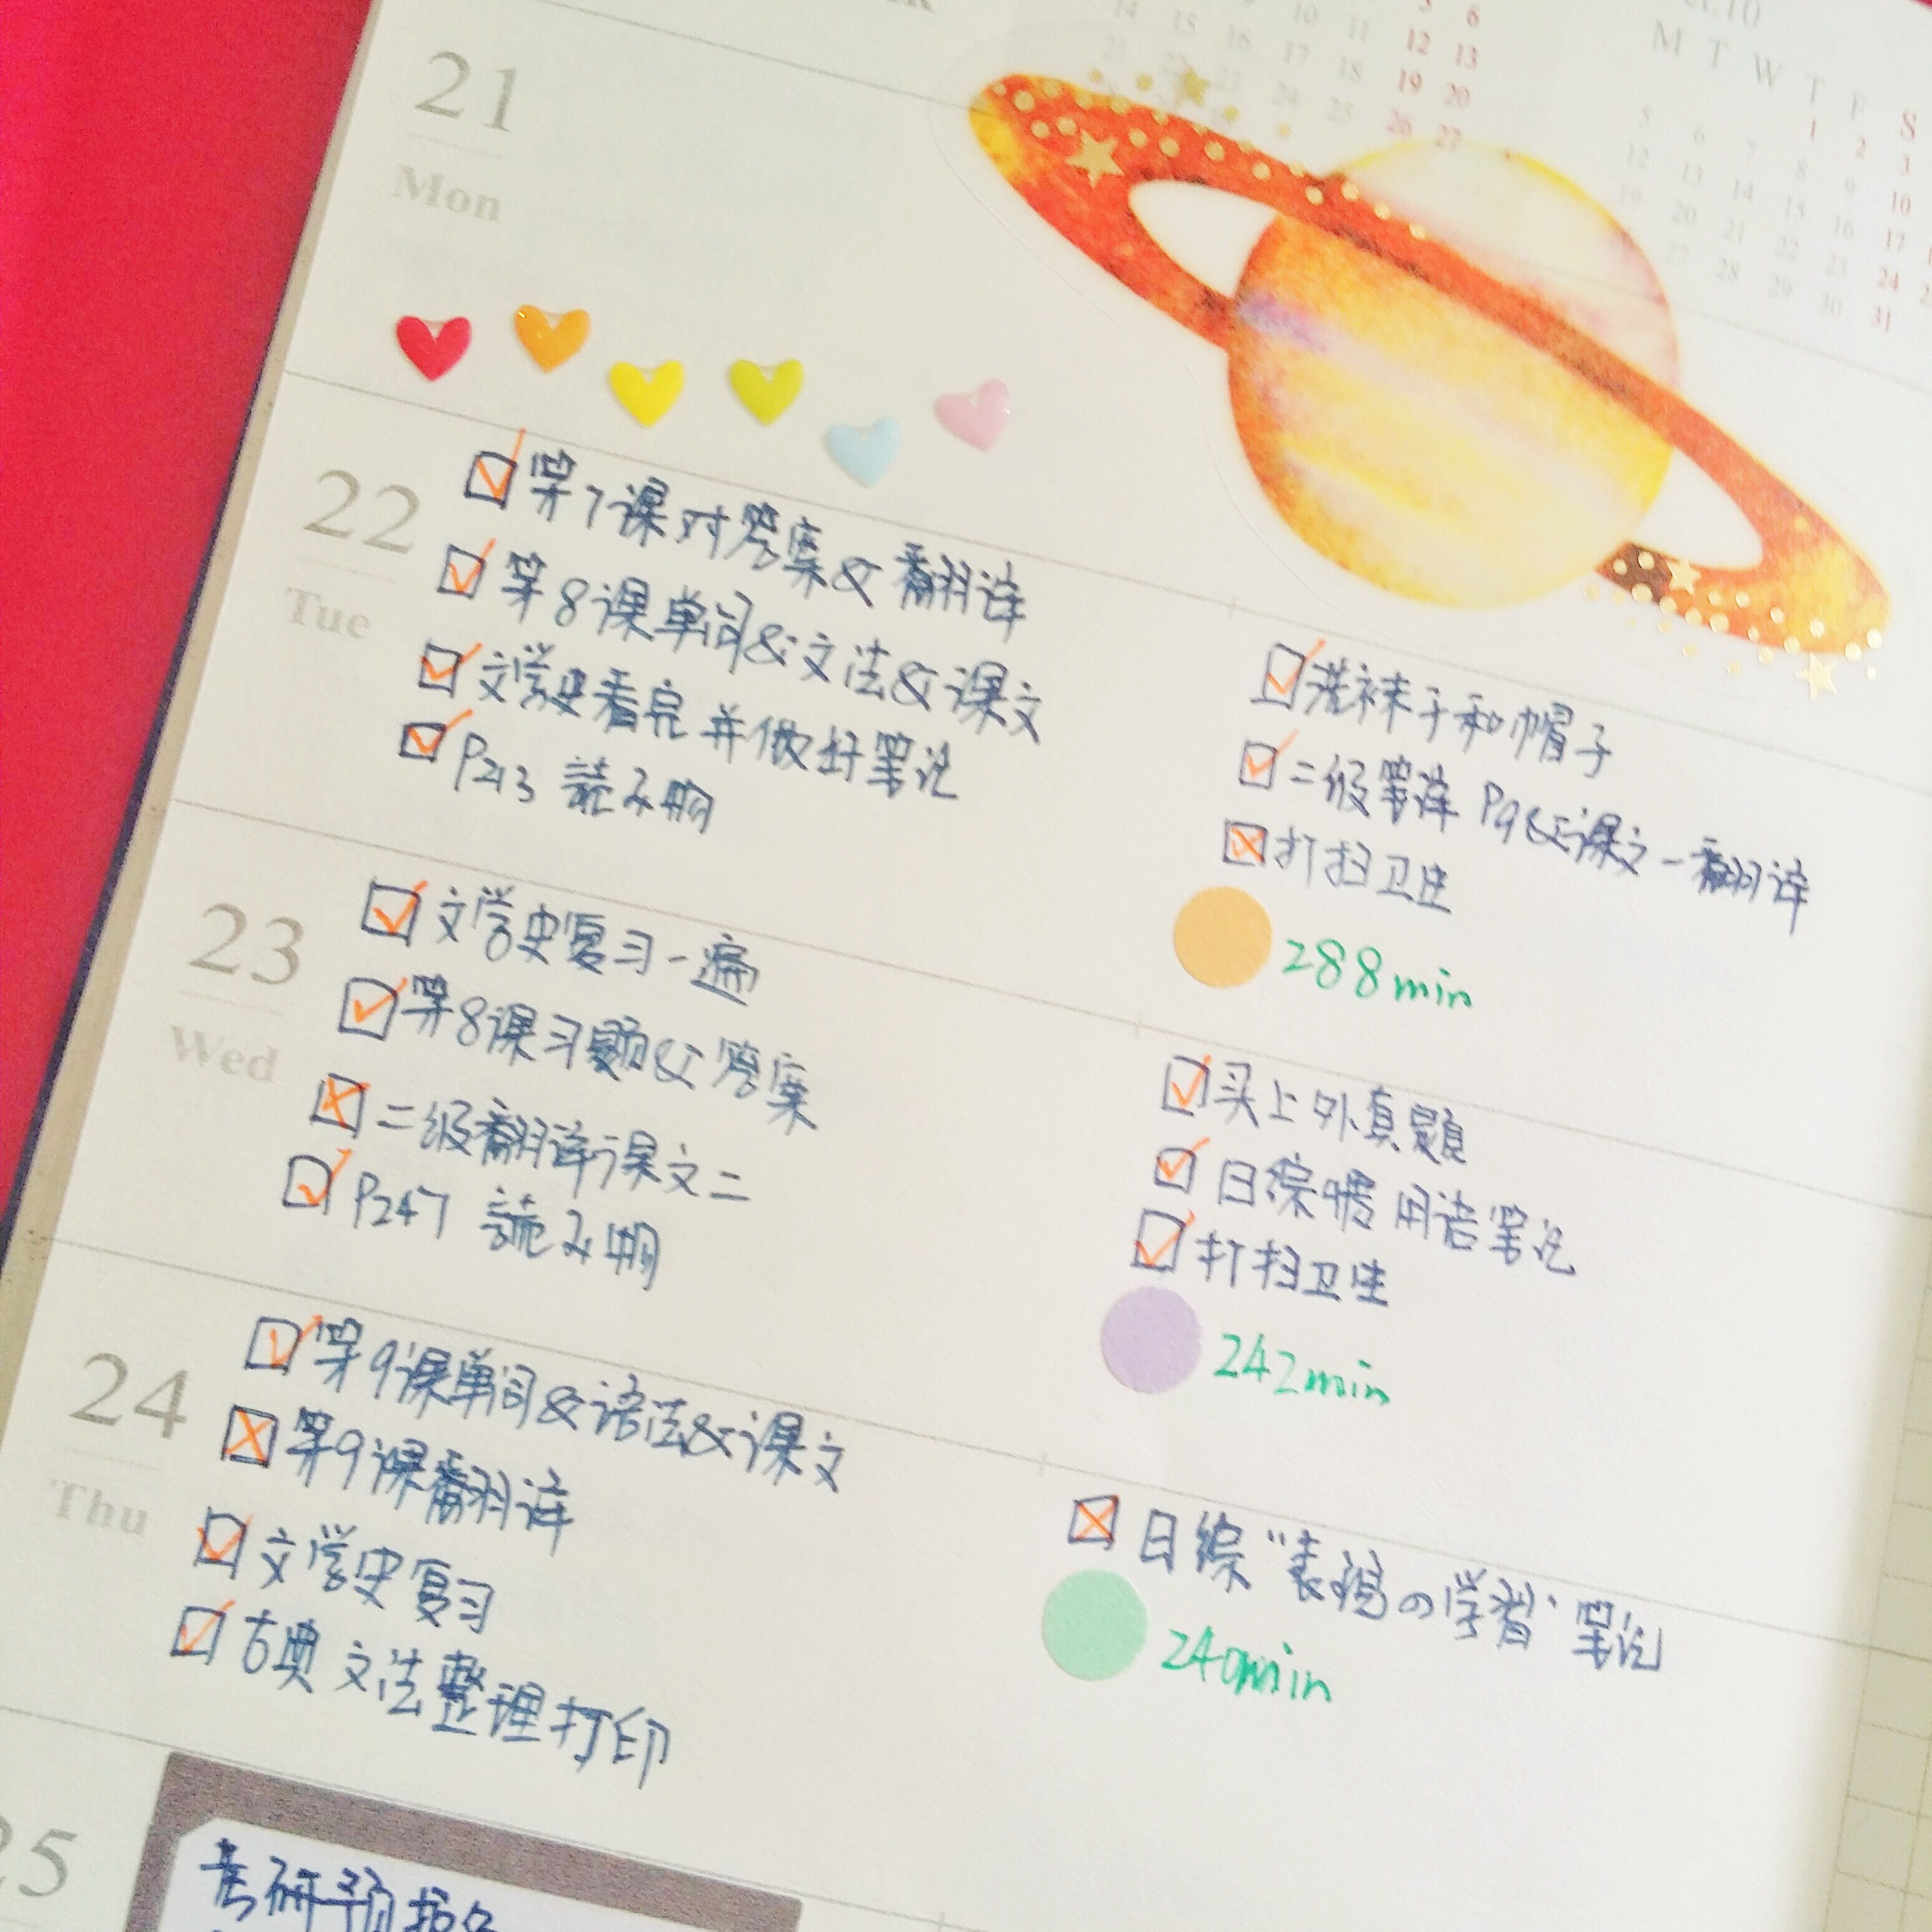 14 15 16 10 11 12 13
21 22 23 17 18 19 20
24 25 26 27
M T W T F S
1 2 3
5 6 7 8 9 10
12 13 14 15 16 17
19 20 21 22 23 24
27 28 29 30 31
21
Mon
22
Tue
第7课对答案&翻译
第8课单词&文法&课文
文学史看完并做好笔记
P213 読み物
洗袜子和帽子
二级笔译 P9&课文一翻译
打扫卫生
288min
23
Wed
文学史复习一遍
第8课习题&答案
二级翻译课文二
P247 読み物
买上外真题
日综 用语笔记
打扫卫生
242min
24
Thu
第9课单词&语法&课文
第9课翻译
文学史复习
古典文法整理打印
日综“表現の学習”笔记
240min
25
考研预报名